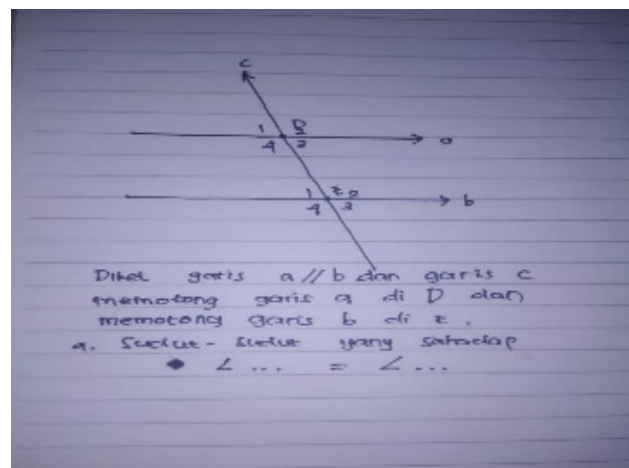 c
1 D
4 3 a
1 E 2
4 3 b
Diket garis a // b dan garis c
memotong garis a di D dan
memotong garis b di E.
a. Sudut-sudut yang sehadap
• ∠ ... = ∠ ...